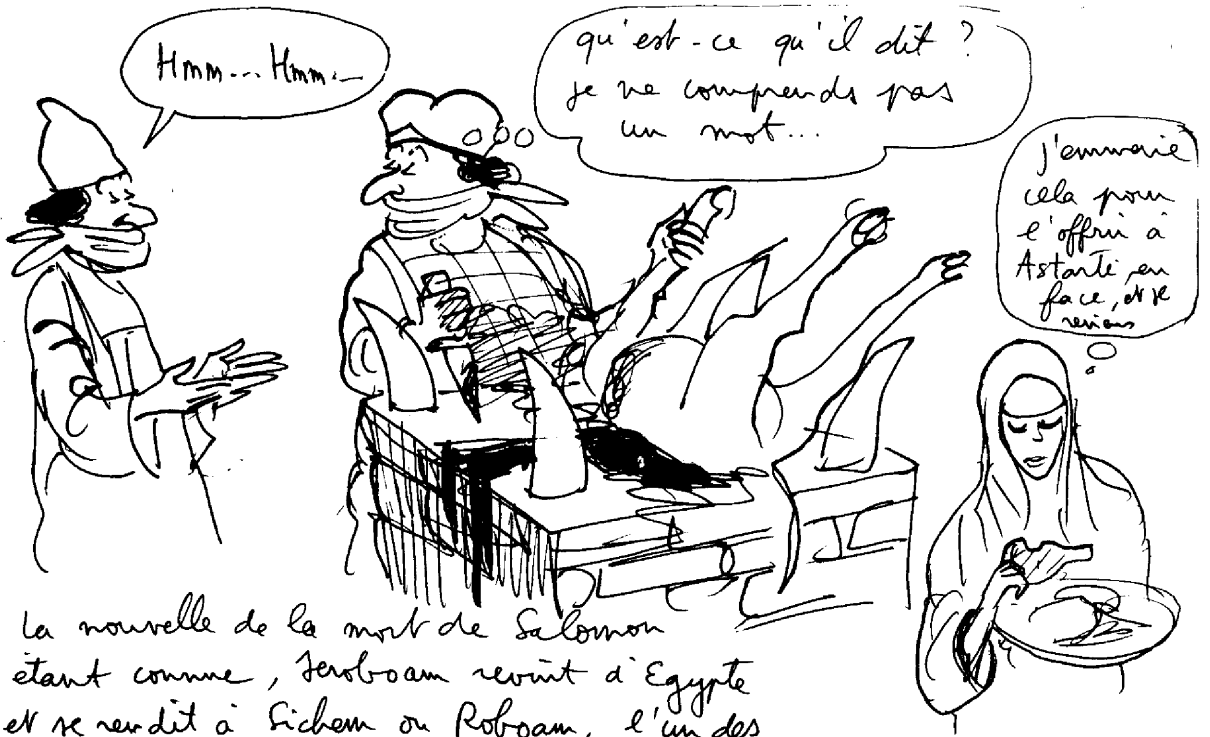 Hmm... Hmm...
qu'est-ce qu'il dit ?
je ne comprends pas
un mot...
j'emmène
cela pour
l'offrir à
Astarté, en
face, et je
reviens
La nouvelle de la mort de Salomon
étant connue, Jeroboam revint d'Egypte
et se rendit à Sichem ou Roboam, l'un des